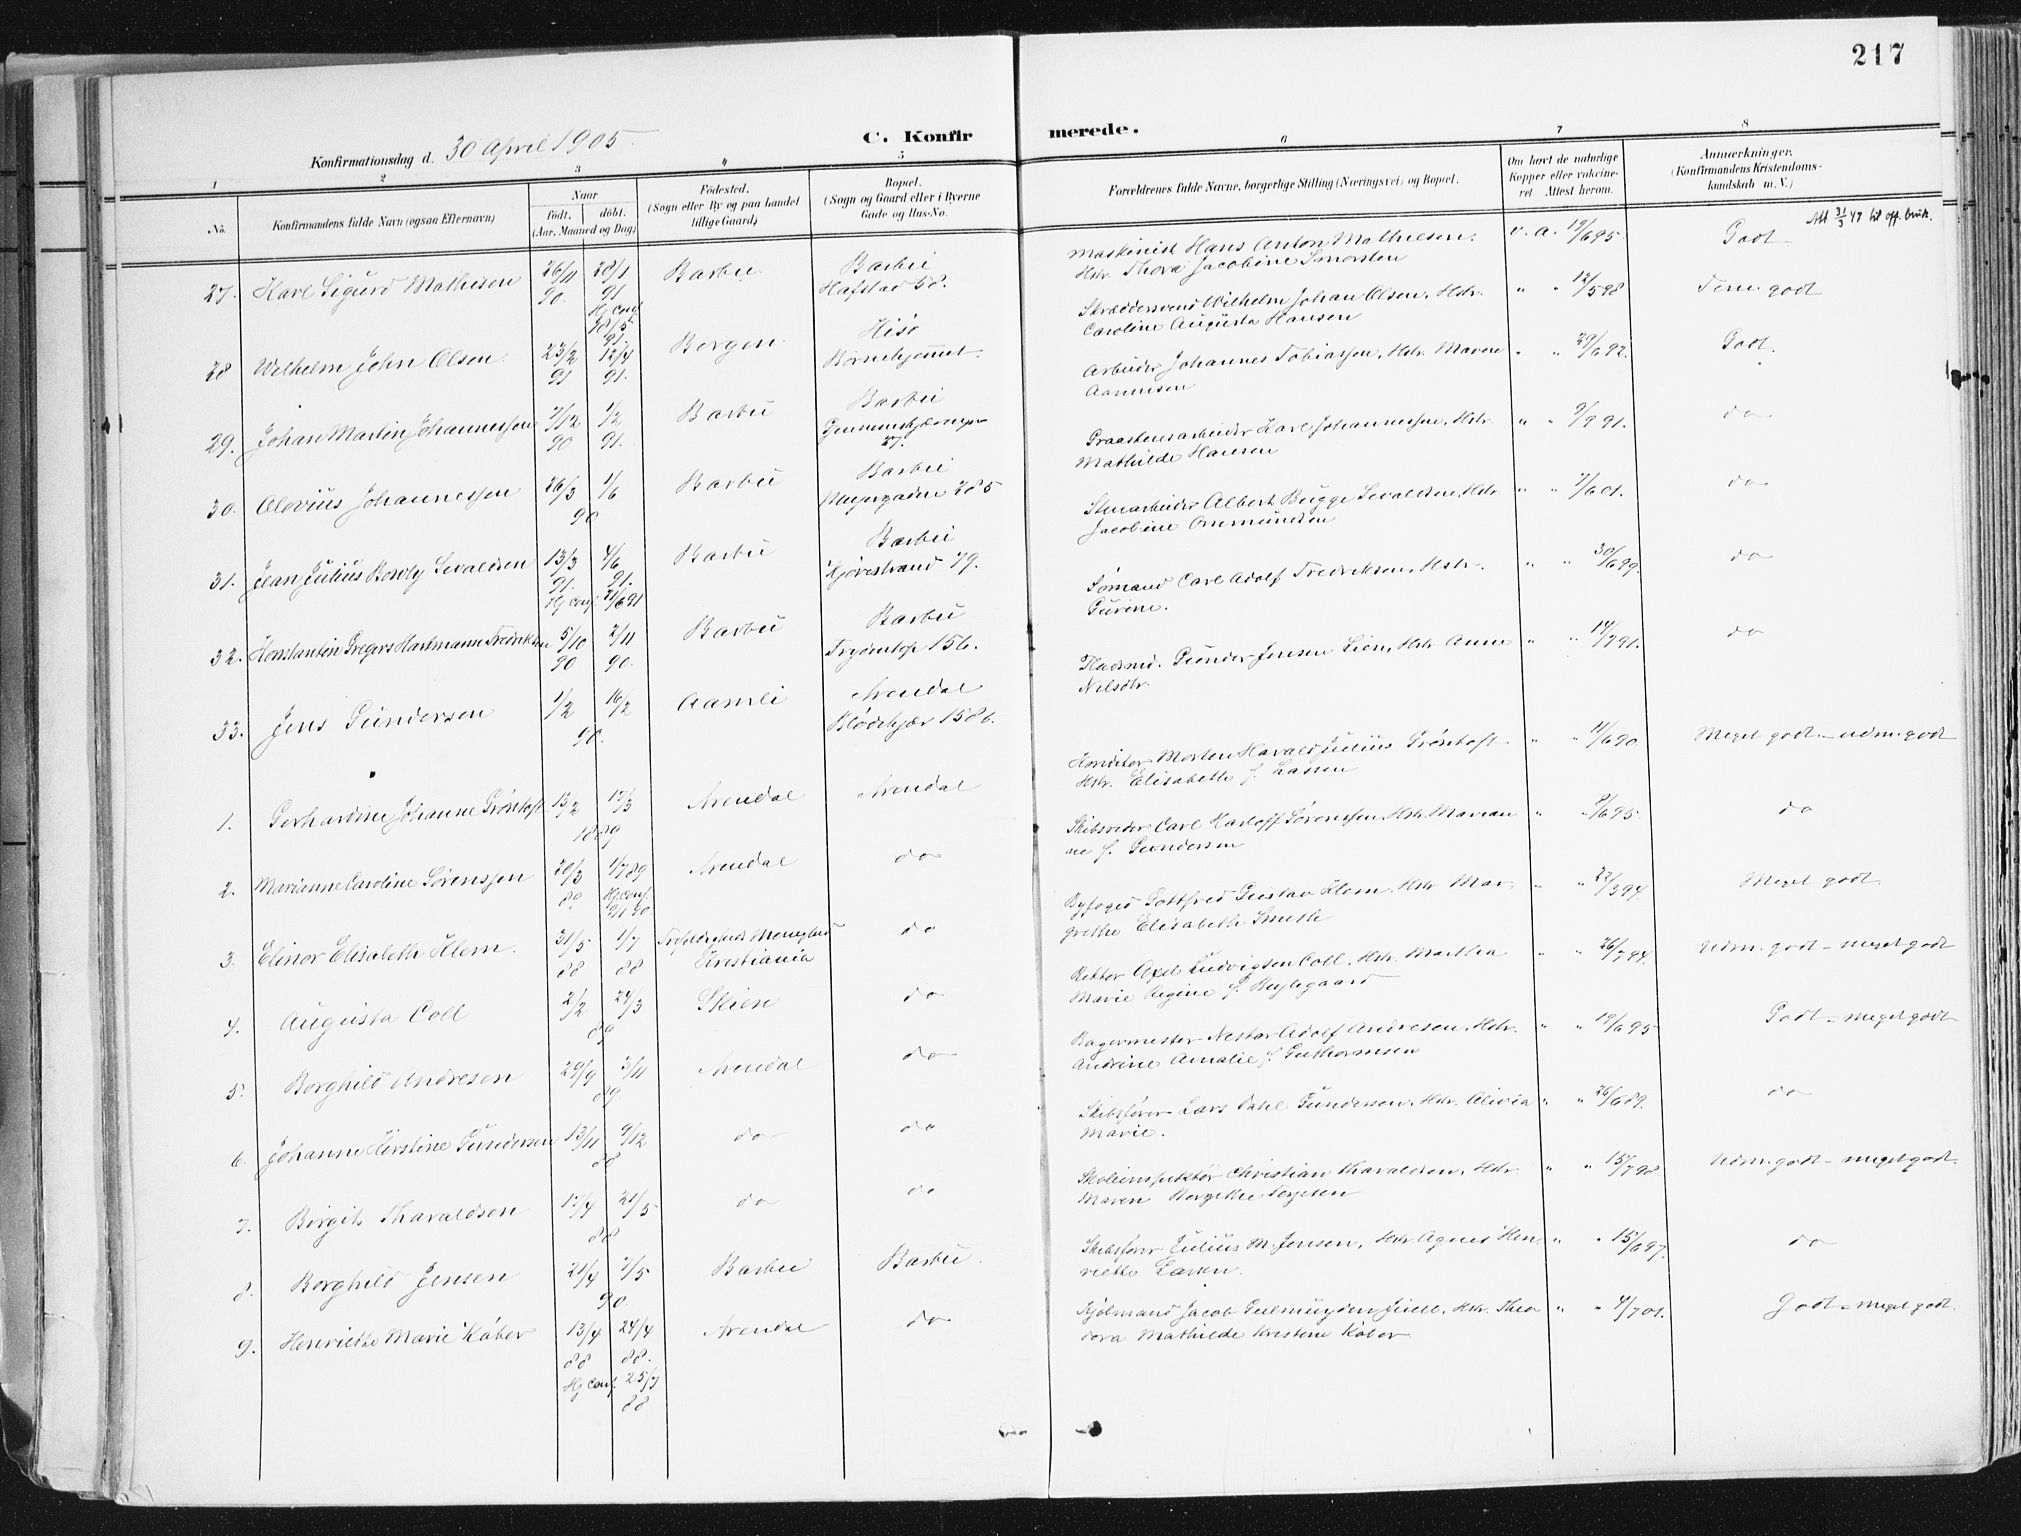 217
Konfirmationsdag d. 30 April 1905
C. Konfirmerede.
1 2 3 4 5 6 7 8
No.
Konfirmandens fulde Navn (ogsaa Efternavn)
Naar
født. døbt.
(Aar, Maaned og Dag)
Fødested.
(Sogn eller By og paa Landet
tillige Gaard)
Bopæl.
(Sogn og Gaard eller i Byerne
Gade og Hus-No.
Forældrenes fulde Navne, borgerlige Stilling (Næringsvei) og Bopæl.
Om havt de naturlige
Kopper eller vaksine-
ret Attest herom.
Anmærkninger.
(Konfirmandens Kristendoms-
kundskab m. V.)
Att 31/3 47 til off. bruk.
27. Karl Sigurd Mathesen 26/11 90. 28/1 91 Hj conf 18/5 91. Barbu Barbu Hafstad 58.
Maskinist Hans Anton Mathiesen. Hstr. Thora Jacobine Smorsten v. a. 19/6 95 Godt
28 Wilhelm John Olsen 23/2 91 12/4 91. Bergen Hisø Børnehjemmet.
Skræddersvend Wilhelm Johan Olsen, Hstr. Caroline Augusta Hansen " " 12/5 98 Tem. godt
29. Johan Martin Johannessen 7/12 90 1/2 91. Barbu Barbu 27.
Arbeider Johannes Tobiassen, Hstr. Maren Aanensen " " 29/6 92. Godt.
30. Olovius Johannessen 26/3 1/6 90 Barbu Barbu Meyergaden 285
Graastensarbeider Karl Johannessen, Hstr. Mathilde Hansen " " 9/9 91. do
31. Jean Julius Sevaldsen 13/3 91. 4/6 91. Hj conf. 21/6 91 Barbu Barbu Kjørestrand 79.
Stenarbeider Albert Bugge Sevaldsen, Hstr. Jacobine Onsmundsen " " 7/6 01. do
32. Konstantin Gregers Hartmann Fredriksen 5/10 90 2/11 90. Barbu Barbu 156.
Sømand Carl Adolf Fredriksen, Hstr. Gurine. " " 30/6 99. do
33. Jens Gundersen 1/2 16/2 90. Aamli Arendal Blødekjær 1586.
Gunder Jensen Lien, Hstr Anne Nilsdtr. " " 14/7 91. do
1. Gerhardine Johanne Grøntoft 13/2 17/3 1889 Arendal Arendal
Konditor Morten Harald Julius Grøntoft Hstr. Elisabeth f. Lassen " " 11/6 90. Meget godt – udm. godt
2. Marianne Caroline Sørenssen 20/3 89 1/7 89 Hj. conf. Arendal do
Skibsreder Carl Harloff Sørenssen, Hstr. Marianne f. Gundersen " " 8/6 95 do
3. Elinor Elisabeth Klem. 31/5 88 1/7 88 Trefoldigheds Menighed Kristiania do
Byfoged Gottfred Gustav Klem, Hstr. Margrethe Elisabeth Smith " " 22/3 94. Meget godt.
4. Augusta Coll 2/2 24/3 89 Skien do
Rektor Axel Ludvigsen Coll, Hstr. Martha Marie Regine f. Brylegaard " " 26/7 94. Udm. godt – meget godt
5. Borghild Andresen 29/9 3/11 89. Arendal do
Bagermester Nestor Adolf Andresen, Hstr. Andrine Amalie f. Guthormsen " " 19/6 95 Godt – meget godt
6. Johanne Kirstine Gundersen 13/11 9/12 88 do do
Skibsfører Lars Dahl Gundersen, Hstr. Olivia Marie. " " 26/6 89. do
7. Birgit Tharaldsen 17/4 21/5 88 do do
Skoleinspektør Christian Tharaldsen, Hstr. Maren Torjesen " " 15/7 98 Udm. godt – meget godt.
8. Borghild Jensen 21/4 7/5 90. Barbu Barbu.
Skibsfører Julius M. Jensen, Hstr. Agnes Henriette Larsen. " " 15/6 97. do
9. Henriette Marie Køber 13/4 88 24/4 88. Hj conf. 25/7 88 Arendal do
Kjølmand Jacob Guldmuyden Juell, Hstr. Theodora Mathilde Kristine Køber " " 4/7 01. Godt – meget godt.